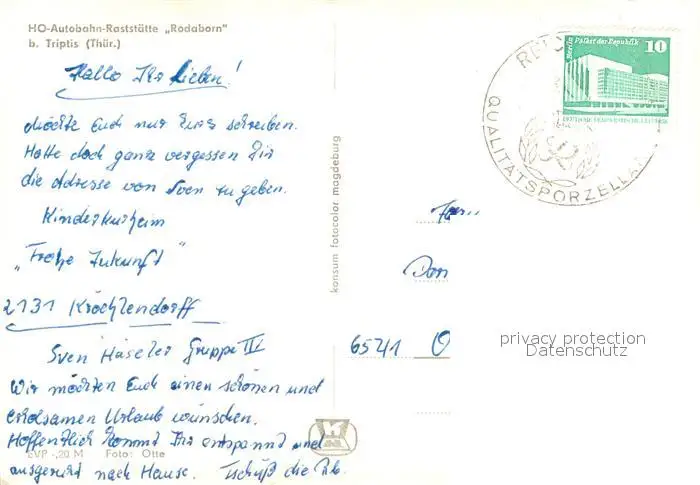 HO-Autobahn-Raststätte „Rodaborn"
b. Triptis (Thür.)
Hallo Ihr Lieben!
Möchte Euch nur kurz schreiben.
Hatte doch ganz vergessen Dir
die Adresse von Sven zu geben.
Kinderkurheim
„Frohe Zukunft"
2131 Kröchlendorff
Sven Häseler Gruppe IV
Wir möchten Euch einen schönen und
erholsamen Urlaub wünschen.
Hoffentlich kommt Ihr entspannt und
ausgeruht nach Hause. Tschüß die
EVP -,20 M Foto: Otte
konsum fotocolor magdeburg
Fam.
6541 O
Berlin, Palast der Republik 10
QUALITÄTSPORZELLA
privacy protection
Datenschutz